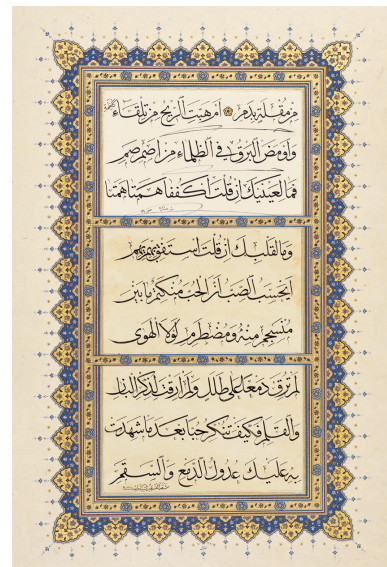 من مقلة بدم أم هبت الريح من تلقاء كاظمة
وأومض البرق في الظلماء من إضم
فما لعينيك إن قلت اكففا همتا
وما لقلبك إن قلت استفق يهم
أيحسب الصب أن الحب منكتم ما بين
منسجم منه ومضطرم لولا الهوى
لم ترق دمعا على طلل ولا أرقت لذكر البان
والعلم فكيف تنكر حبا بعد ما شهدت
به عليك عدول الدمع والسقم